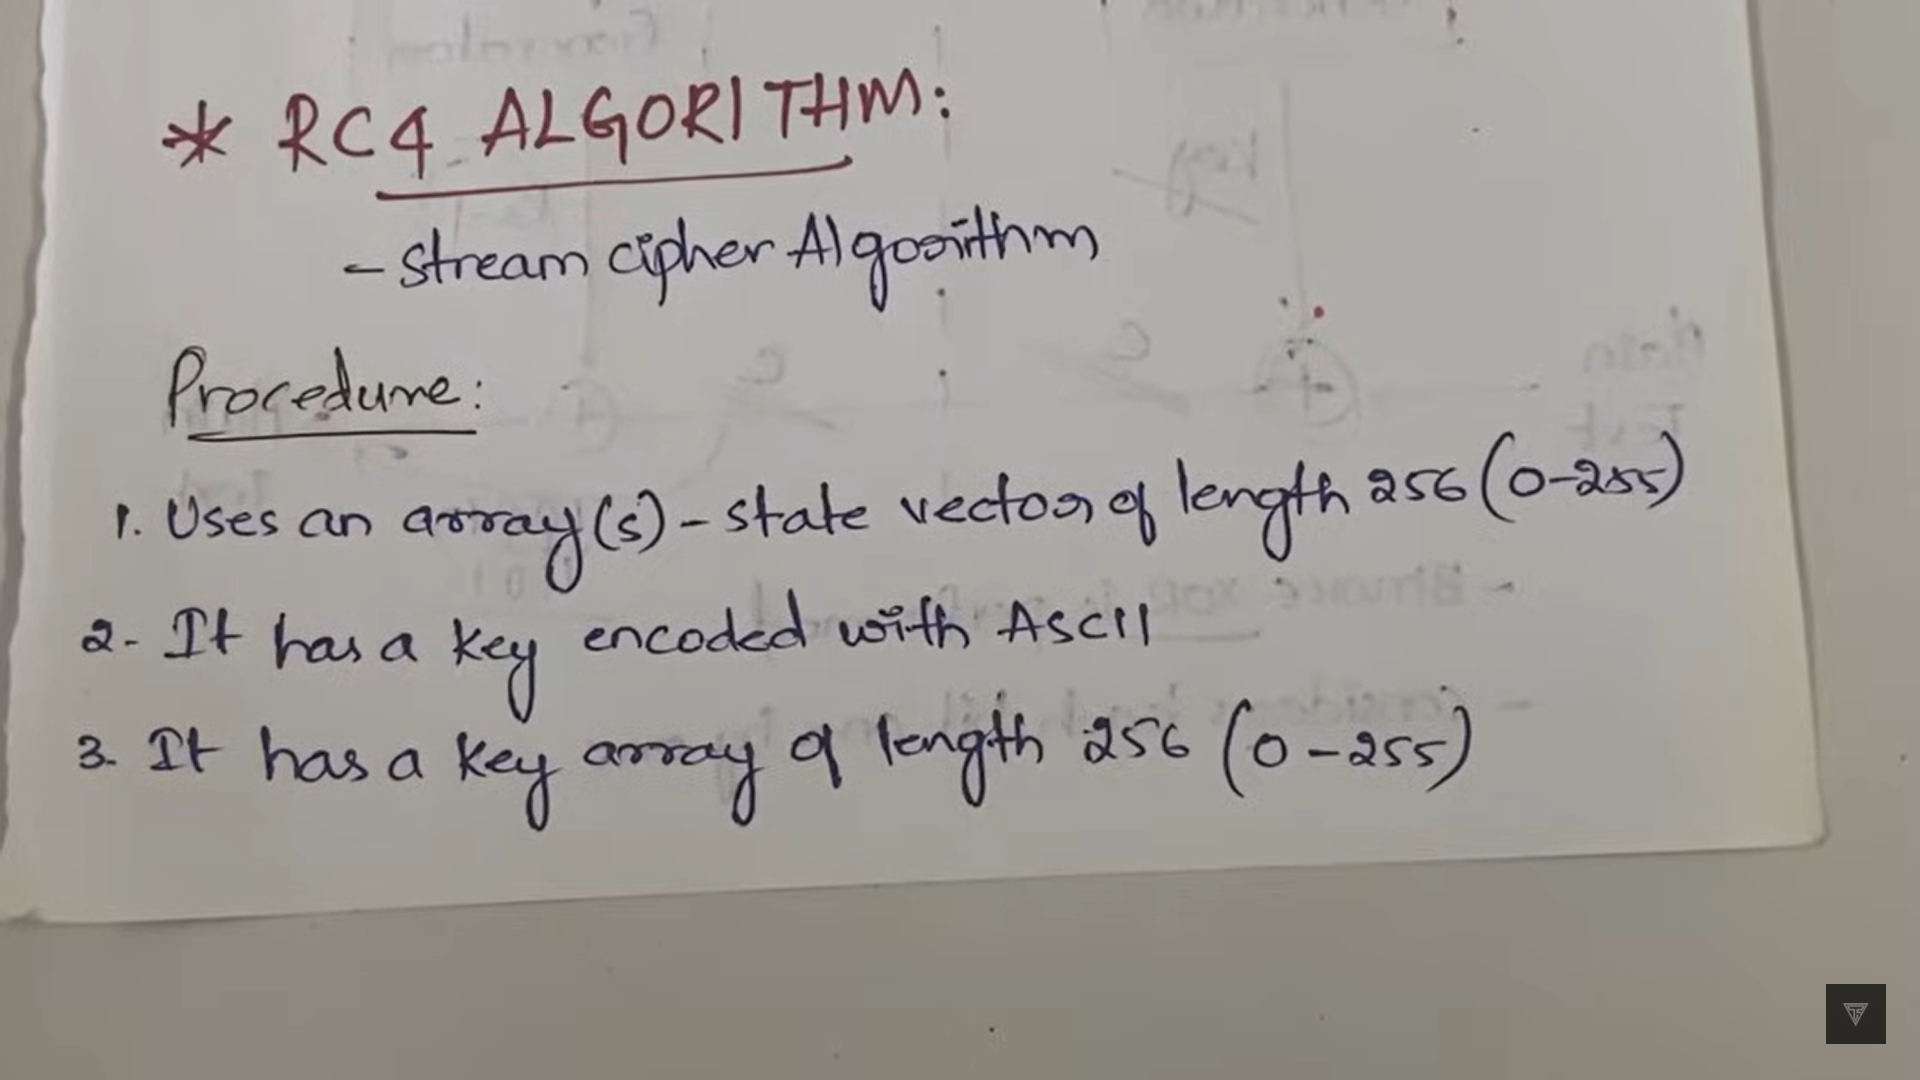 * RC4 ALGORITHM:
- stream cipher Algorithm
Procedure:
1. Uses an array(s) - state vector of length 256 (0-255)
2. It has a key encoded with ASCII
3. It has a key array of length 256 (0-255)